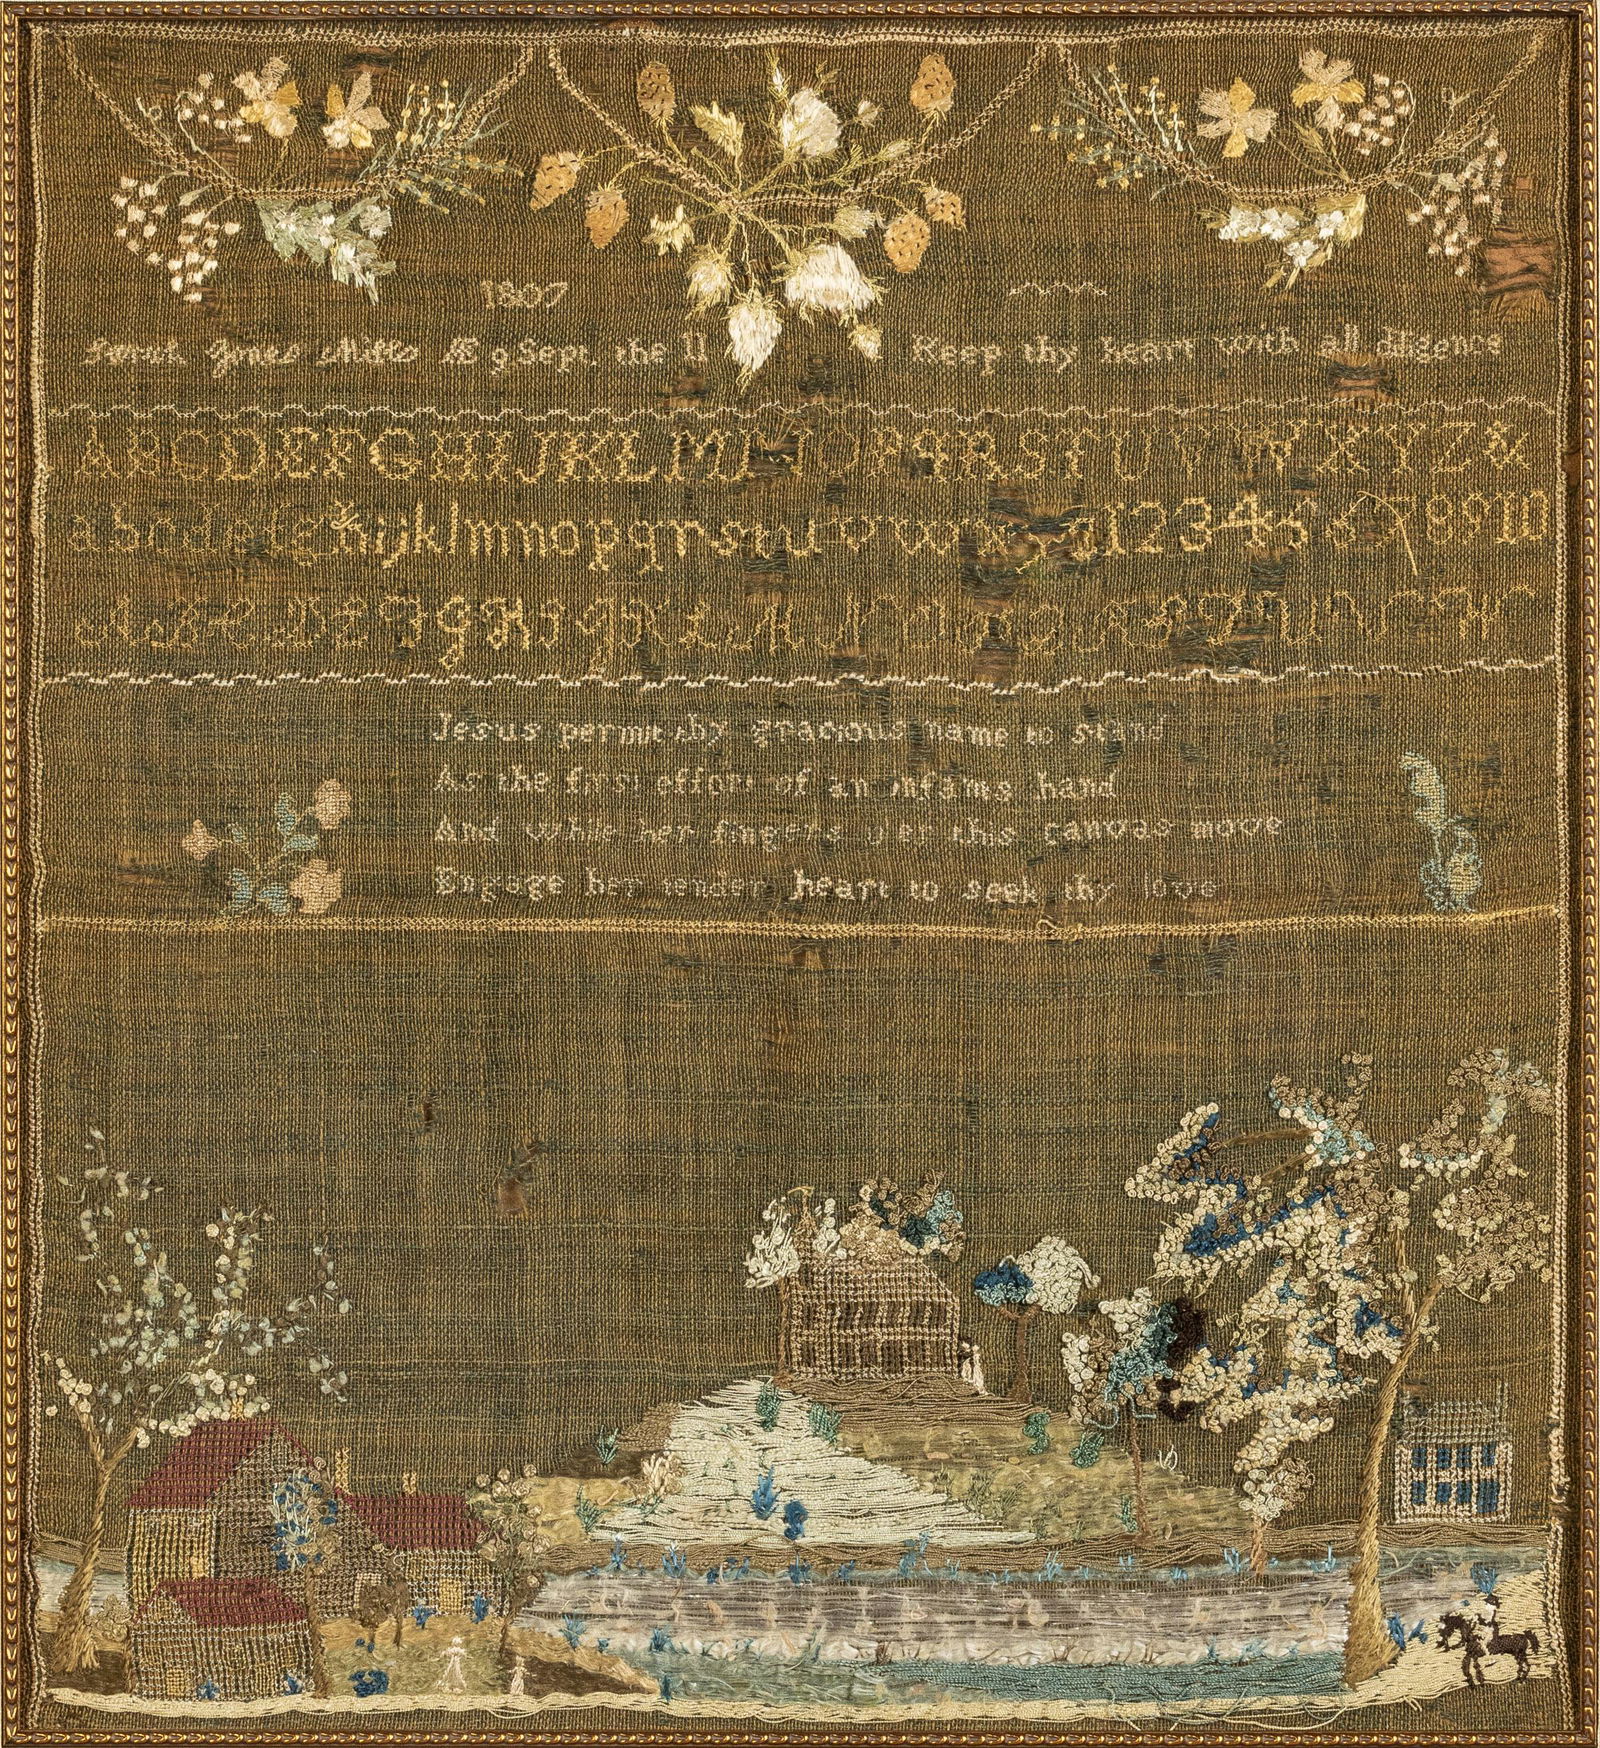 1807
Sarah Jones Æ 9 Sept. the 11 Keep thy heart with all diligence
ABCDEFGHIJKLMNOPQRSTUVWXYZ&
abcdefghijklmnopqrstuvwxyz12345678910
ABCDEFGHIJKLMNOPQRSTUVW
Jesus permit thy gracious name to stand
As the first effort of an infants hand
And while her fingers o'er this canvas move
Engage her tender heart to seek thy love